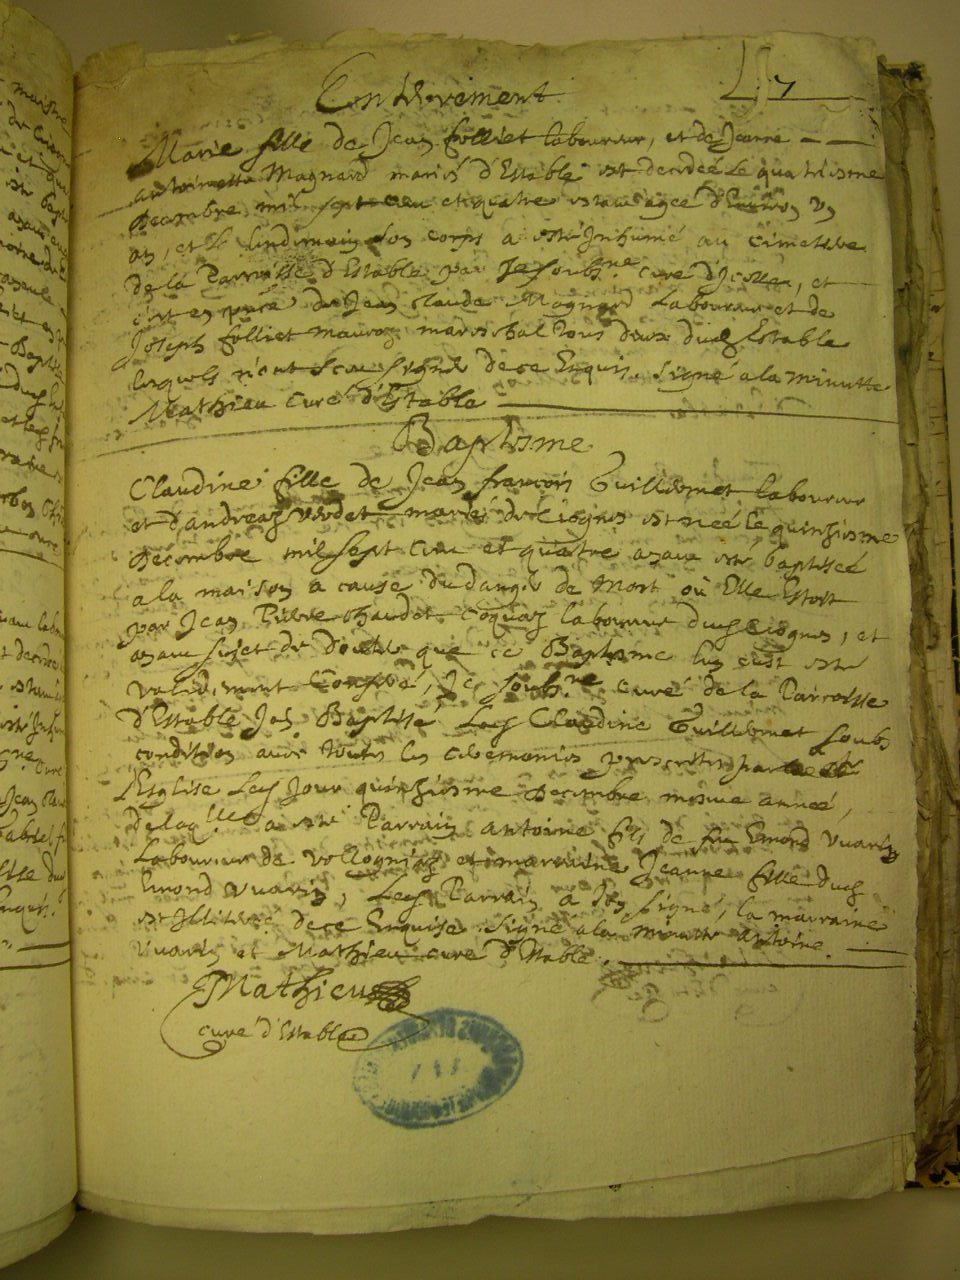 Enterrement 7
Marie fille de Jean folliet laboureur, et de Jeanne
antoinette Magnard mariés d'Estable est decedeé le quatriesme
decembre mil sept cens et quatre estant agee d'environ un
an, et le lindimain son corps a esté Inhumé au cimetiere
de la Parroisse d'Estable par Je soubs.ne curé d'Icelleu, et
en pnce de Jean Claude Magnard Laboureur et de
Joseph folliet mareschal tous deux dud Estable
lesquels n'ont sceu signer de ce Enquis. Signé a la minutte
Mathieu curé d'Estable
Baptesme
Claudine fille de Jean françois Guillermet laboureur
et d'andreaz mariés est neé le quinziesme
decembre mil sept cens et quatre ayant esté baptiseé
a la maison a cause du danger de Mort où Elle Estoit
par Jean Pierre laboureur, et
ayant sujet de doubter que ce Baptesme luy eust esté
validement Conferé, Je soubs.ne curé de la Parroisse
d'Estable Jay Baptisé Lad Claudine Guillermet soubs
condition avec toutes les ceremonies prescrites par
l'Eglise Led Jour quinziesme decembre mesme anneé,
de laq.lle a esté Parrain antoine fils de feu Emond Vuarin
Laboureur de et marraine Jeanne fille dud
Emond Vuarin, Led Parrain a signé, la marraine
est Illiteree de ce Enquise. Signé a la minutte antoine
Vuarin et Mathieu curé d'Estable.
Mathieu
curé d'Estable